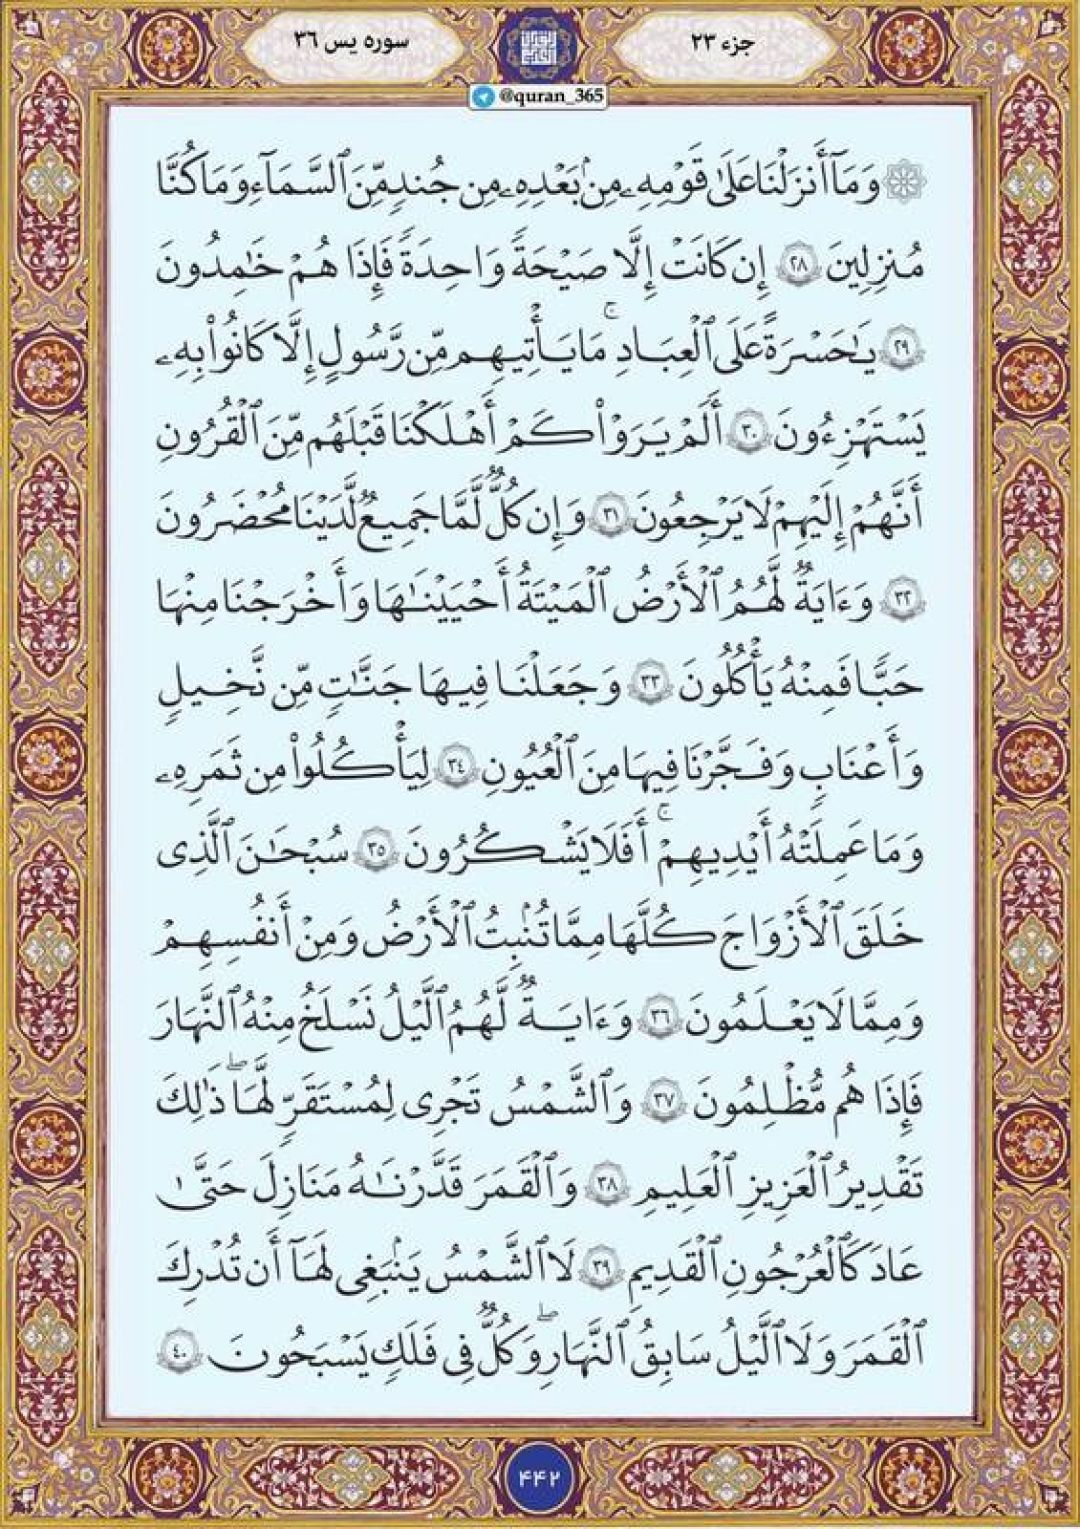 جزء ۲۳
سوره یس ۳۶
@quran_365
۞ وَمَآ أَنزَلْنَا عَلَىٰ قَوْمِهِۦ مِنۢ بَعْدِهِۦ مِن جُندٍ مِّنَ ٱلسَّمَآءِ وَمَا كُنَّا
مُنزِلِينَ ٢٨ إِن كَانَتْ إِلَّا صَيْحَةً وَٰحِدَةً فَإِذَا هُمْ خَٰمِدُونَ
٢٩ يَٰحَسْرَةً عَلَى ٱلْعِبَادِ ۚ مَا يَأْتِيهِم مِّن رَّسُولٍ إِلَّا كَانُوا۟ بِهِۦ
يَسْتَهْزِءُونَ ٣٠ أَلَمْ يَرَوْا۟ كَمْ أَهْلَكْنَا قَبْلَهُم مِّنَ ٱلْقُرُونِ
أَنَّهُمْ إِلَيْهِمْ لَا يَرْجِعُونَ ٣١ وَإِن كُلٌّ لَّمَّا جَمِيعٌ لَّدَيْنَا مُحْضَرُونَ
٣٢ وَءَايَةٌ لَّهُمُ ٱلْأَرْضُ ٱلْمَيْتَةُ أَحْيَيْنَٰهَا وَأَخْرَجْنَا مِنْهَا
حَبًّا فَمِنْهُ يَأْكُلُونَ ٣٣ وَجَعَلْنَا فِيهَا جَنَّٰتٍ مِّن نَّخِيلٍ
وَأَعْنَٰبٍ وَفَجَّرْنَا فِيهَا مِنَ ٱلْعُيُونِ ٣٤ لِيَأْكُلُوا۟ مِن ثَمَرِهِۦ
وَمَا عَمِلَتْهُ أَيْدِيهِمْ ۚ أَفَلَا يَشْكُرُونَ ٣٥ سُبْحَٰنَ ٱلَّذِى
خَلَقَ ٱلْأَزْوَٰجَ كُلَّهَا مِمَّا تُنۢبِتُ ٱلْأَرْضُ وَمِنْ أَنفُسِهِمْ
وَمِمَّا لَا يَعْلَمُونَ ٣٦ وَءَايَةٌ لَّهُمُ ٱلَّيْلُ نَسْلَخُ مِنْهُ ٱلنَّهَارَ
فَإِذَا هُم مُّظْلِمُونَ ٣٧ وَٱلشَّمْسُ تَجْرِى لِمُسْتَقَرٍّ لَّهَا ۚ ذَٰلِكَ
تَقْدِيرُ ٱلْعَزِيزِ ٱلْعَلِيمِ ٣٨ وَٱلْقَمَرَ قَدَّرْنَٰهُ مَنَازِلَ حَتَّىٰ
عَادَ كَٱلْعُرْجُونِ ٱلْقَدِيمِ ٣٩ لَا ٱلشَّمْسُ يَنۢبَغِى لَهَآ أَن تُدْرِكَ
ٱلْقَمَرَ وَلَا ٱلَّيْلُ سَابِقُ ٱلنَّهَارِ ۚ وَكُلٌّ فِى فَلَكٍ يَسْبَحُونَ ٤٠
۴۴۲